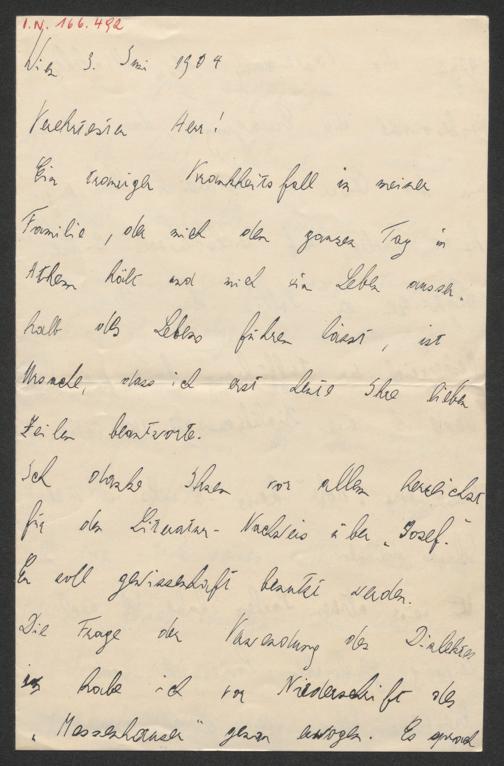 I.N. 166.492
Wien 3. Juni 1904
Verehrtester Herr!
Ein trauriger Krankheitsfall in meiner
Familie, der mich den ganzen Tag in
Athem hält und mich ein Leben ausser-
halb des Lebens führen lässt, ist
Ursache, dass ich erst heute Ihre lieben
Zeilen beantworte.
Ich danke Ihnen vor allem herzlichst
für den Literatur-Nachweis über „Josef."
Er soll gewissenhaft benutzt werden.
Die Frage der Verwendung des Dialektes
habe ich vor Niederschrift des
„Messenhauser" genau erwogen. Es sprach